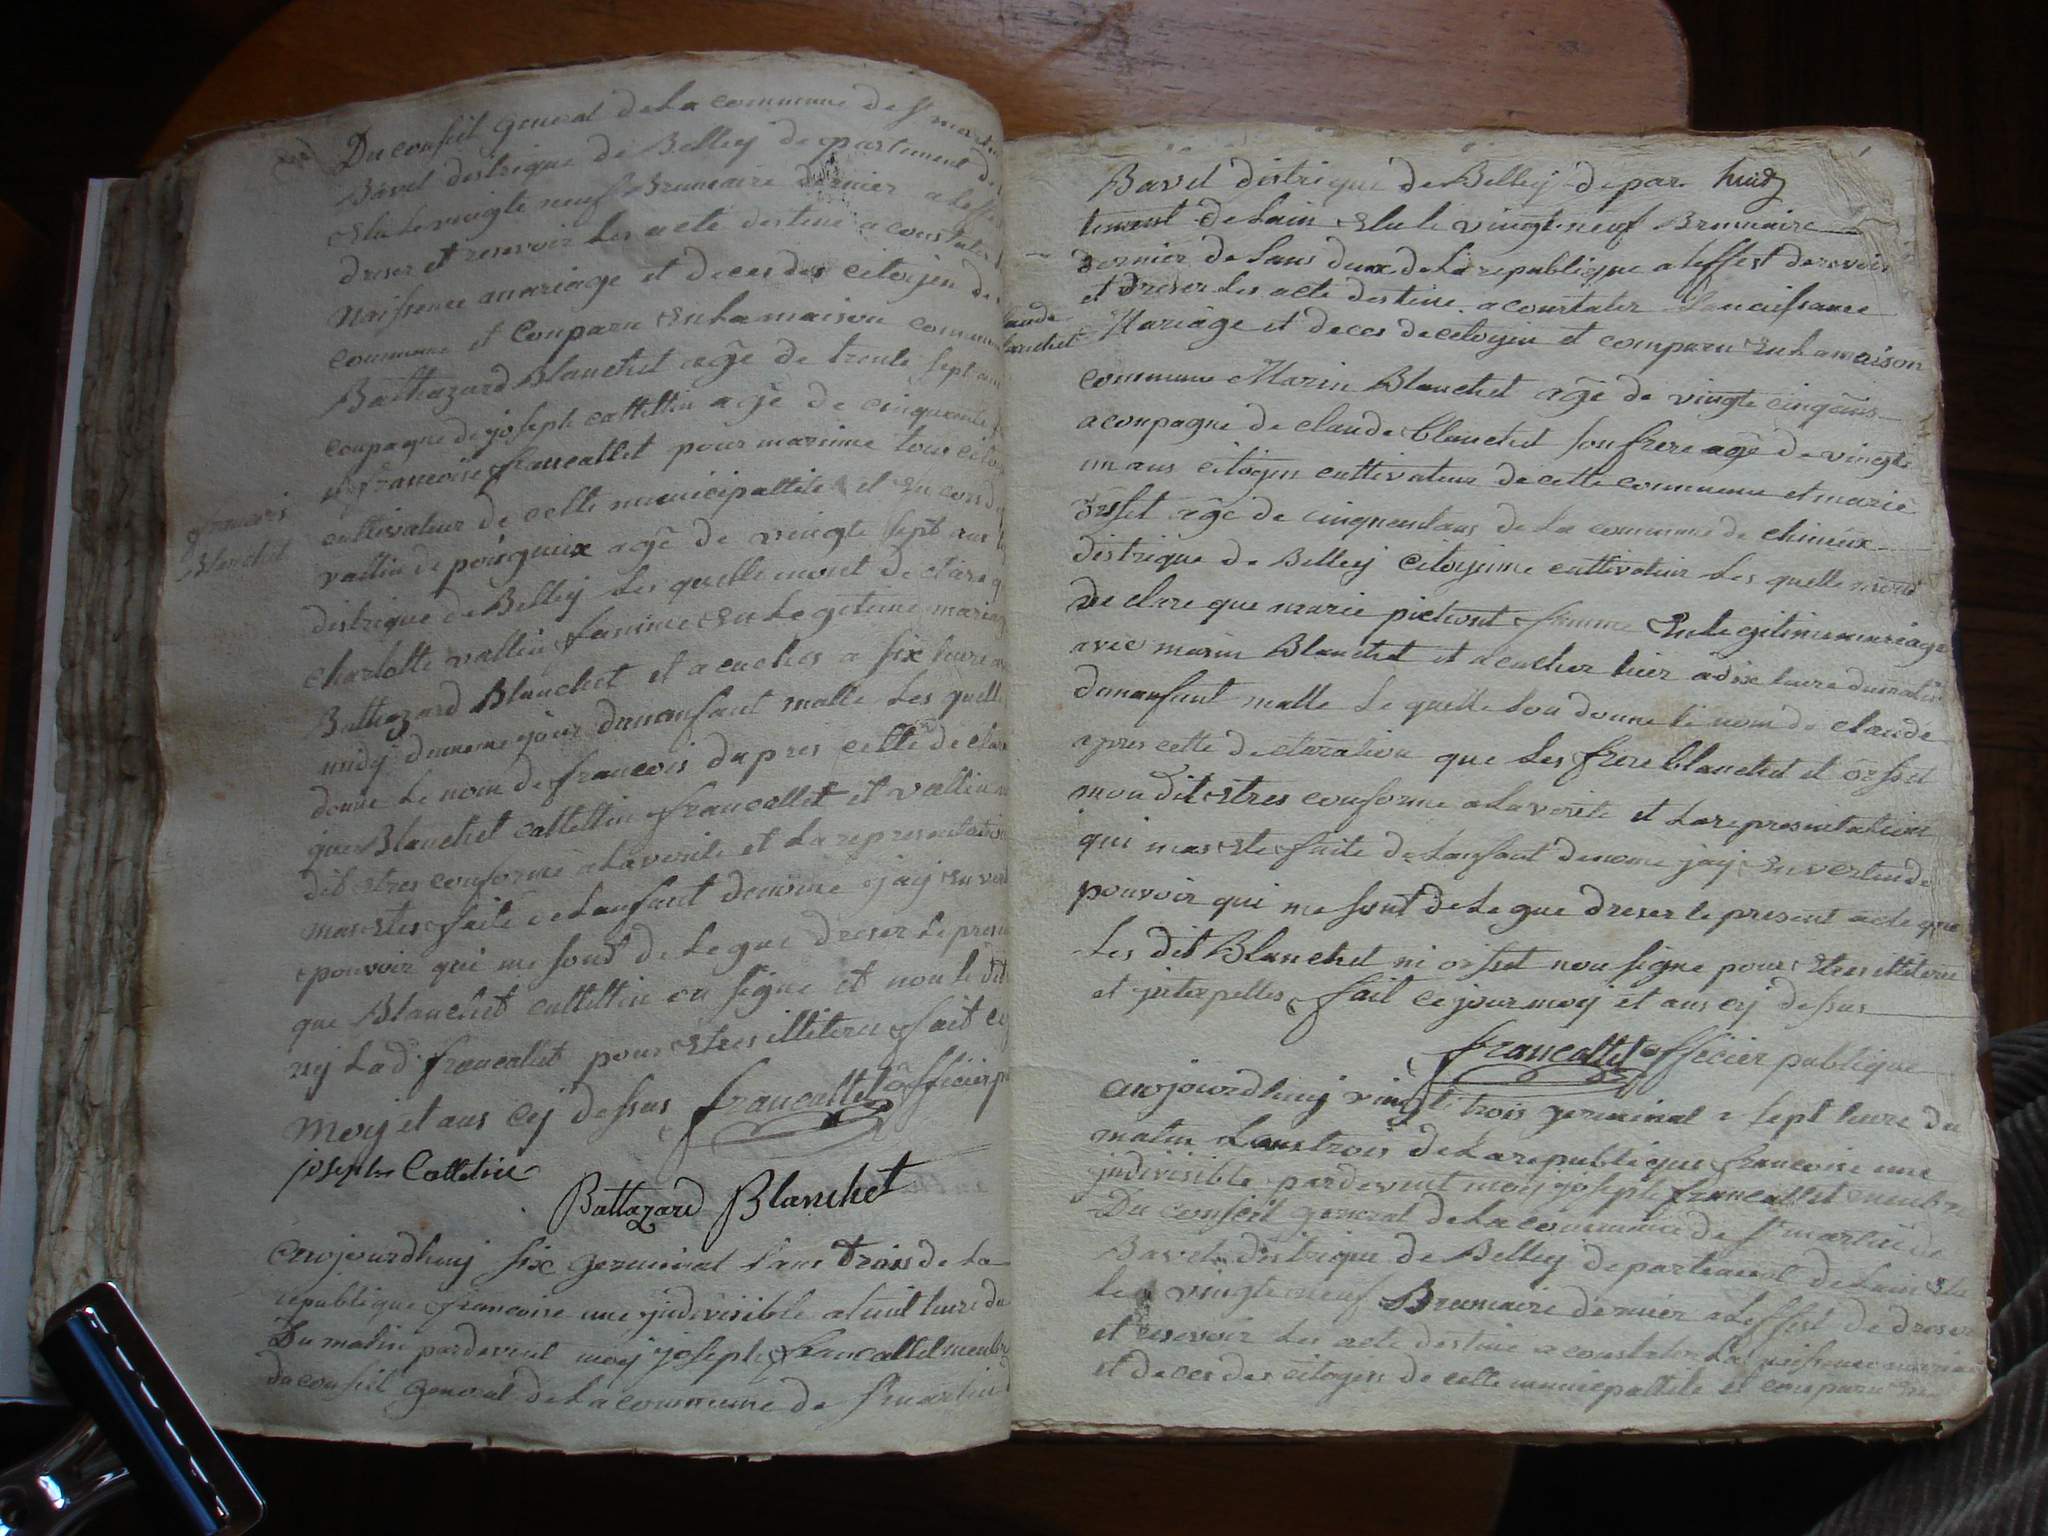 Du conseil general de La commune de st martin
Bavel destrique de Belley departement de
Elu le vingte neuf Brumaire dernier a Leffes
dreser et resevoir Les acte destine a constater
Naissence mariage et deces des citoijen de
commune et Conparu En La maison commune
Balthazard Blanchet agé de trente sept ans
conpagne de joseph cattettin agé de cinquante
et francoise francallet pour marinne tous cito
cultivateur de cette municipattite et En cors de
francois
Blanchet
vattin de poirguix agé de vingte sept ans
distrique de Belley Les quelle mont de clare q
charlotte vattin famme En Le gitime mariag
Balthazard Blanchet et a cuches a six heure
midij dumeme jour dunanfant malle Les quelle
donne Le nom de francois dapres cette de clar
que Blanchet cattettin francallet et vattin
dit Estres conforme a La verite et La representation
mas Estes faite de Lanfant denomé jaij En vert
pouvoir qui me sont de Le gue dreser Le presen
que Blanchet cattettin on signe et non Le dit
nij La d francallet pour Estres illiteré fait ce
moij et ans cij dessus francattet officier p
joseph Cattetin
Battazard Blanchet
aujourdhuij six germinal Lans trois de La
republique francoise une jndivisible a huit heure du
Du matin pardevent moij joseph francattet menbr
du conseil general de La commune de st martin
Bavel distrique de Belley depar huit
tement de Lain Elu le vingt neuf Brumaire
dernier de Lans deux de La republique a Leffest de resevoir
et dreser Les acte destine a constater La naissance
laude
lanchet
Mariage et deces de citoyin et comparu En La maison
commune Marin Blanchet agé de vingte cinq ans
aconpagne de claude blanchet son frere agé de vingte
un ans citoyin cultivateur de cette commune et marie
orsset agé de cinquentans de La commune de chemieux
distrique de Belley citoyinne cultivateur Les quelle mont
de clare que marie pictiont famme En Le gitime mariage
avec marin Blanchet et a cucher hier a dix heure dumatin
dunanfant malle Le quelle Lon donne le nom de claude
apres cette de claration que Les frere blanchet et orsset
mon dit Estres conforme a La verite et La representation
qui mas Este faite de Lanfant denome jaij En vertu de
pouvoir qui me sont de Le gue dreser le present acte que
Les dit Blanchet ni orsset non signe pour Estres illiteré
et jnterpelles fait ce jour moij et ans cij dessus
francattet officier publique
aujourdhuij vingte trois germinal a sept heure du
matin Lans trois de La republique francoise une
jndivisible pardevent moij joseph francattet menbre
Du conseil general de La commune de st martin de
Bavel distrique de Belley departement de Lain Elu
le vingte neuf Brumaire dernier a Leffest de dreser
et resevoir Les acte destine a constater La naissence mariage
et deces des citoyen de cette municipattite et conparu En